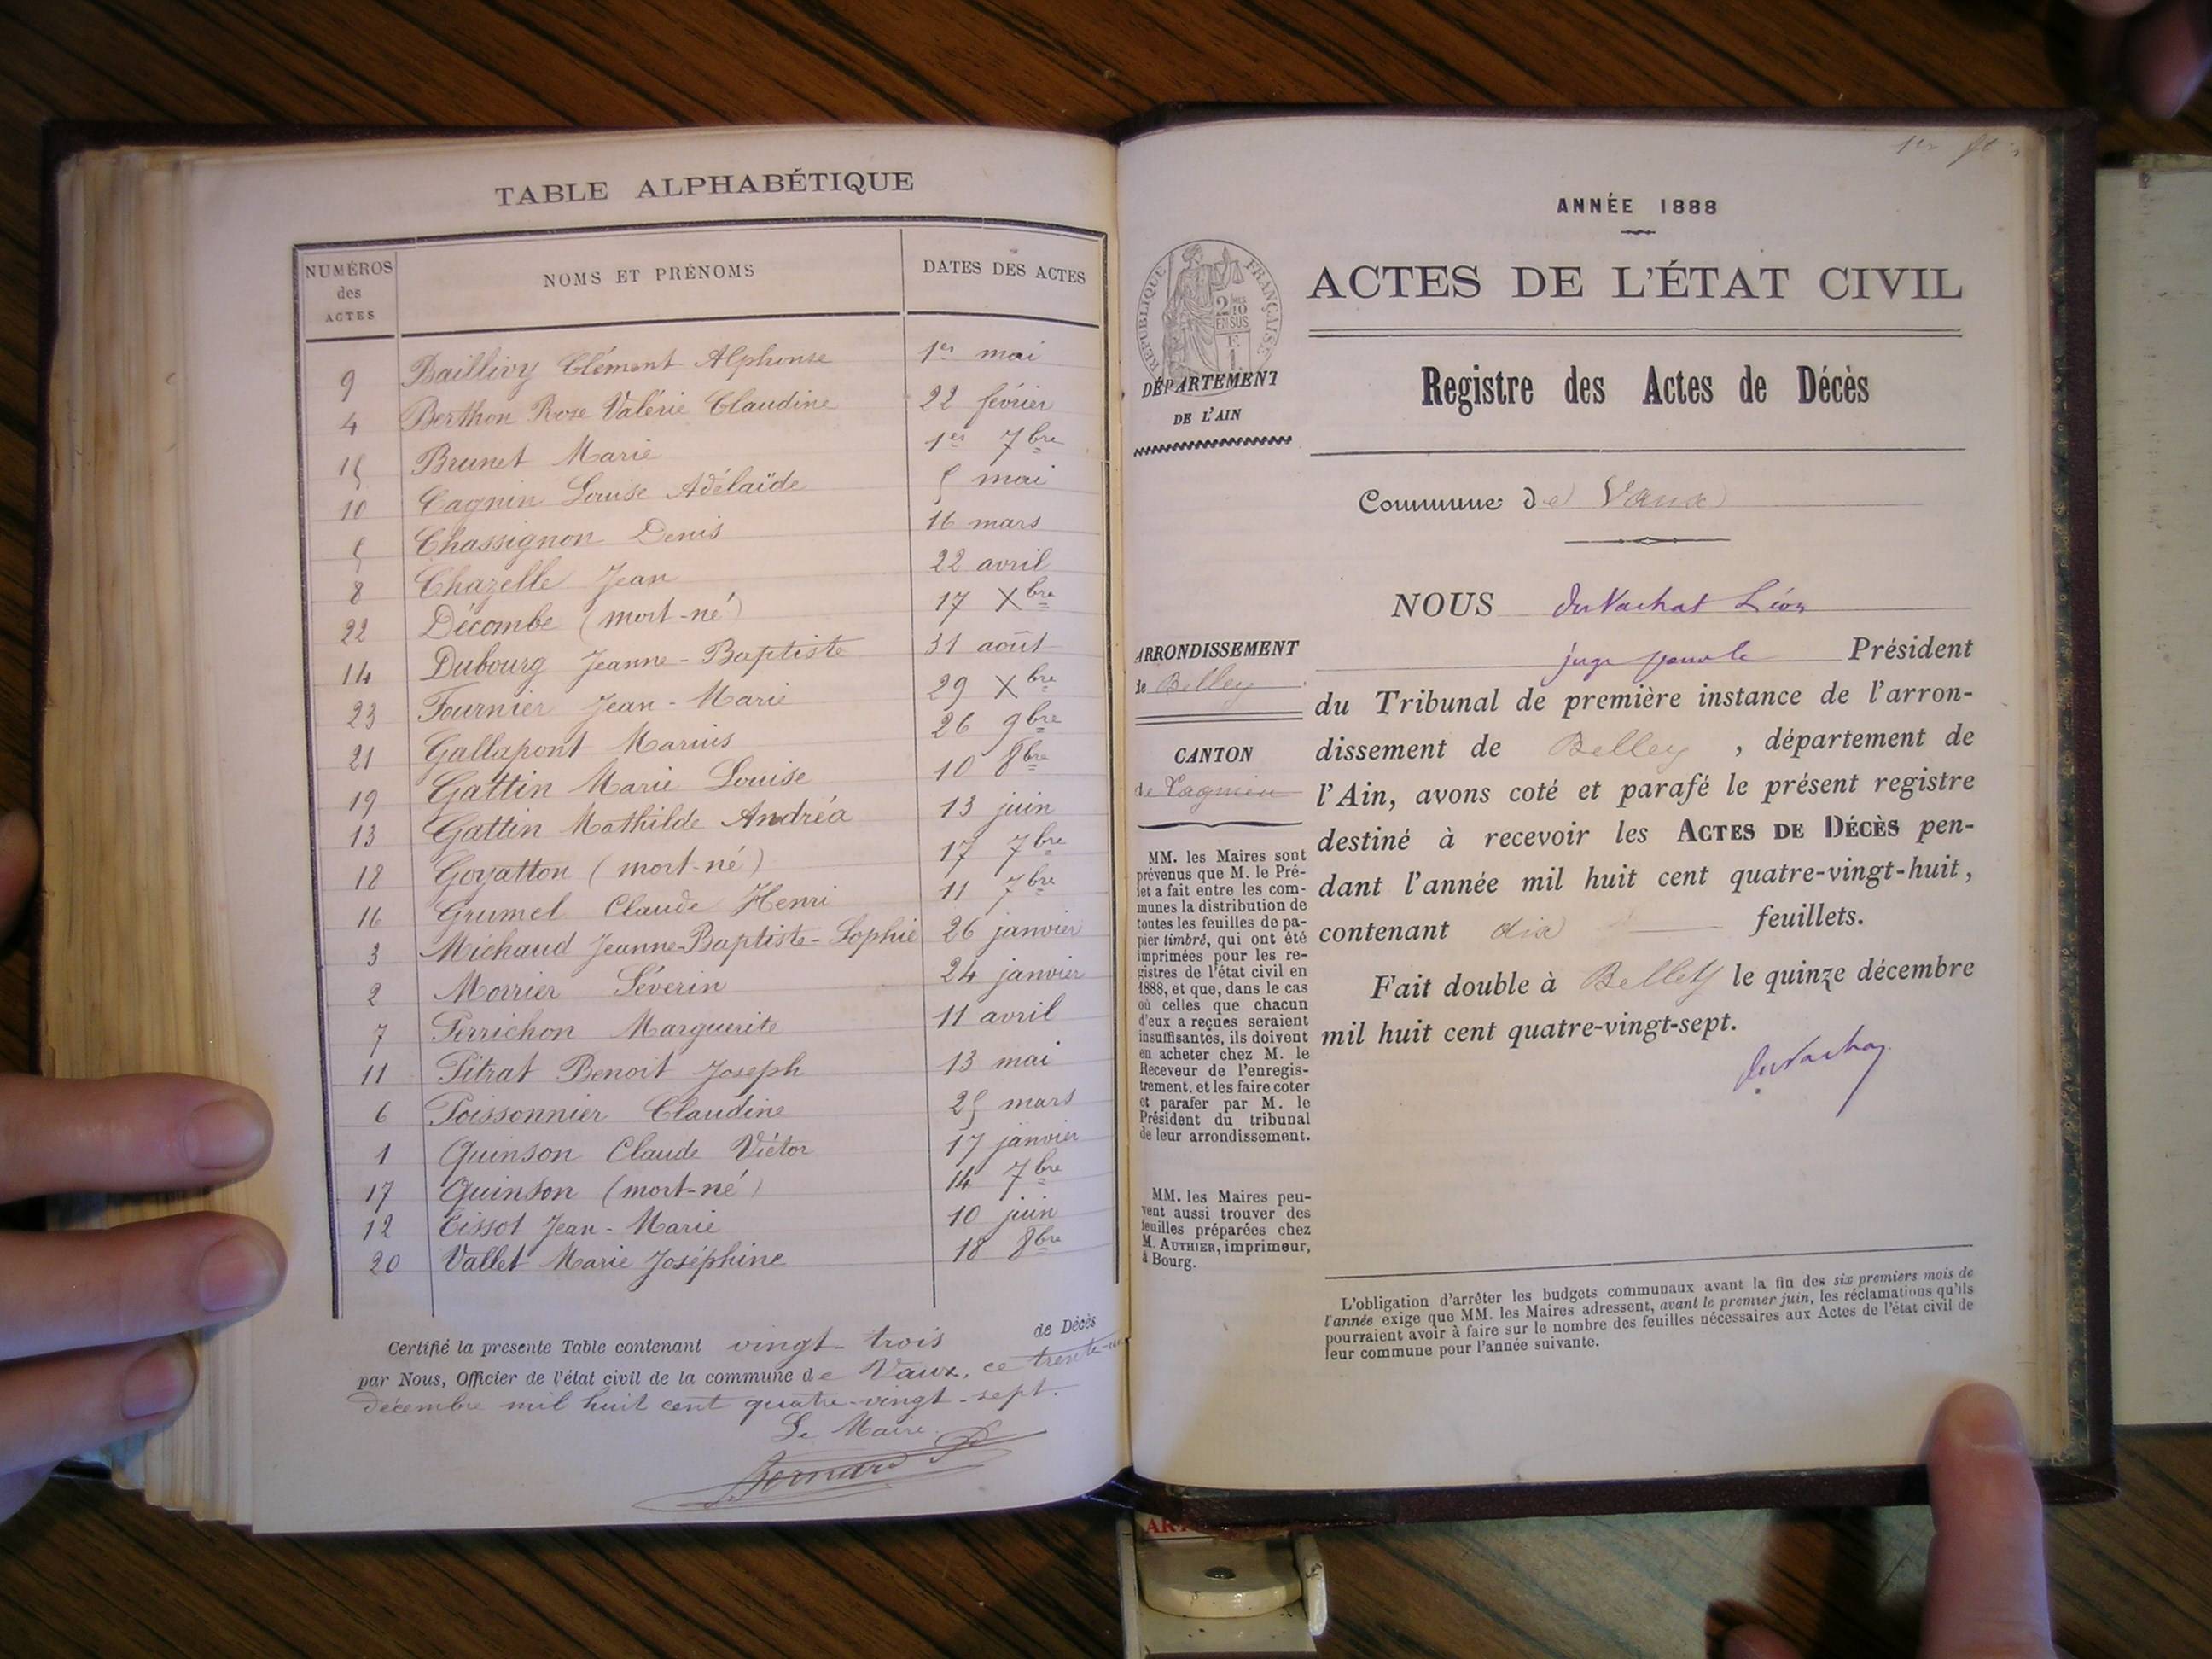 TABLE ALPHABÉTIQUE
NUMÉROS des ACTES NOMS ET PRÉNOMS DATES DES ACTES
9 Baillivy Clément Alphonse 1er mai
4 Berthon Rose Valérie Claudine 22 février
15 Brunet Marie 1er 7bre
10 Cagnin Louise Adélaïde 5 mai
5 Chassignon Denis 16 mars
8 Chazelle Jean 22 avril
22 Décombe (mort-né) 17 Xbre
14 Dubourg Jeanne-Baptiste 31 août
23 Fournier Jean-Marie 29 Xbre
21 Gallapont Marius 26 9bre
19 Gattin Marie Louise 10 8bre
13 Gattin Mathilde Andréa 13 juin
18 Goyatton (mort-né) 17 7bre
16 Grumel Claude Henri 11 7bre
3 Michaud Jeanne-Baptiste-Sophie 26 janvier
2 Morrier Séverin 24 janvier
7 Perrichon Marguerite 11 avril
11 Pitrat Benoit Joseph 13 mai
6 Poissonnier Claudine 25 mars
1 Quinson Claude Victor 17 janvier
17 Quinson (mort-né) 14 7bre
12 Tissot Jean-Marie 10 juin
20 Vallet Marie Joséphine 18 8bre
Certifié la presente Table contenant vingt-trois de Décès
par Nous, Officier de l'état civil de la commune de Vaux, ce trente-un
décembre mil huit cent quatre-vingt-sept.
Le Maire
Bernard
ANNÉE 1888
ACTES DE L'ÉTAT CIVIL
RÉPUBLIQUE FRANÇAISE
2/10
EN SUS
DÉPARTEMENT
DE L'AIN
Registre des Actes de Décès
Commune de Vaux
ARRONDISSEMENT
de Belley
CANTON
de Lagnieu
MM. les Maires sont
prévenus que M. le Pré-
fet a fait entre les com-
munes la distribution de
toutes les feuilles de pa-
pier timbré, qui ont été
imprimées pour les re-
gistres de l'état civil en
1888, et que, dans le cas
où celles que chacun
d'eux a reçues seraient
insuffisantes, ils doivent
en acheter chez M. le
Receveur de l'enregis-
trement, et les faire coter
et parafer par M. le
Président du tribunal
de leur arrondissement.
MM. les Maires peu-
vent aussi trouver des
feuilles préparées chez
M. AUTHIER, imprimeur,
à Bourg.
NOUS du Vachat Léon
juge pour le Président
du Tribunal de première instance de l'arron-
dissement de Belley, département de
l'Ain, avons coté et parafé le présent registre
destiné à recevoir les ACTES DE DÉCÈS pen-
dant l'année mil huit cent quatre-vingt-huit,
contenant dix feuillets.
Fait double à Belley le quinze décembre
mil huit cent quatre-vingt-sept.
du Vachat
L'obligation d'arrêter les budgets communaux avant la fin des six premiers mois de
l'année exige que MM. les Maires adressent, avant le premier juin, les réclamations qu'ils
pourraient avoir à faire sur le nombre des feuilles nécessaires aux Actes de l'état civil de
leur commune pour l'année suivante.